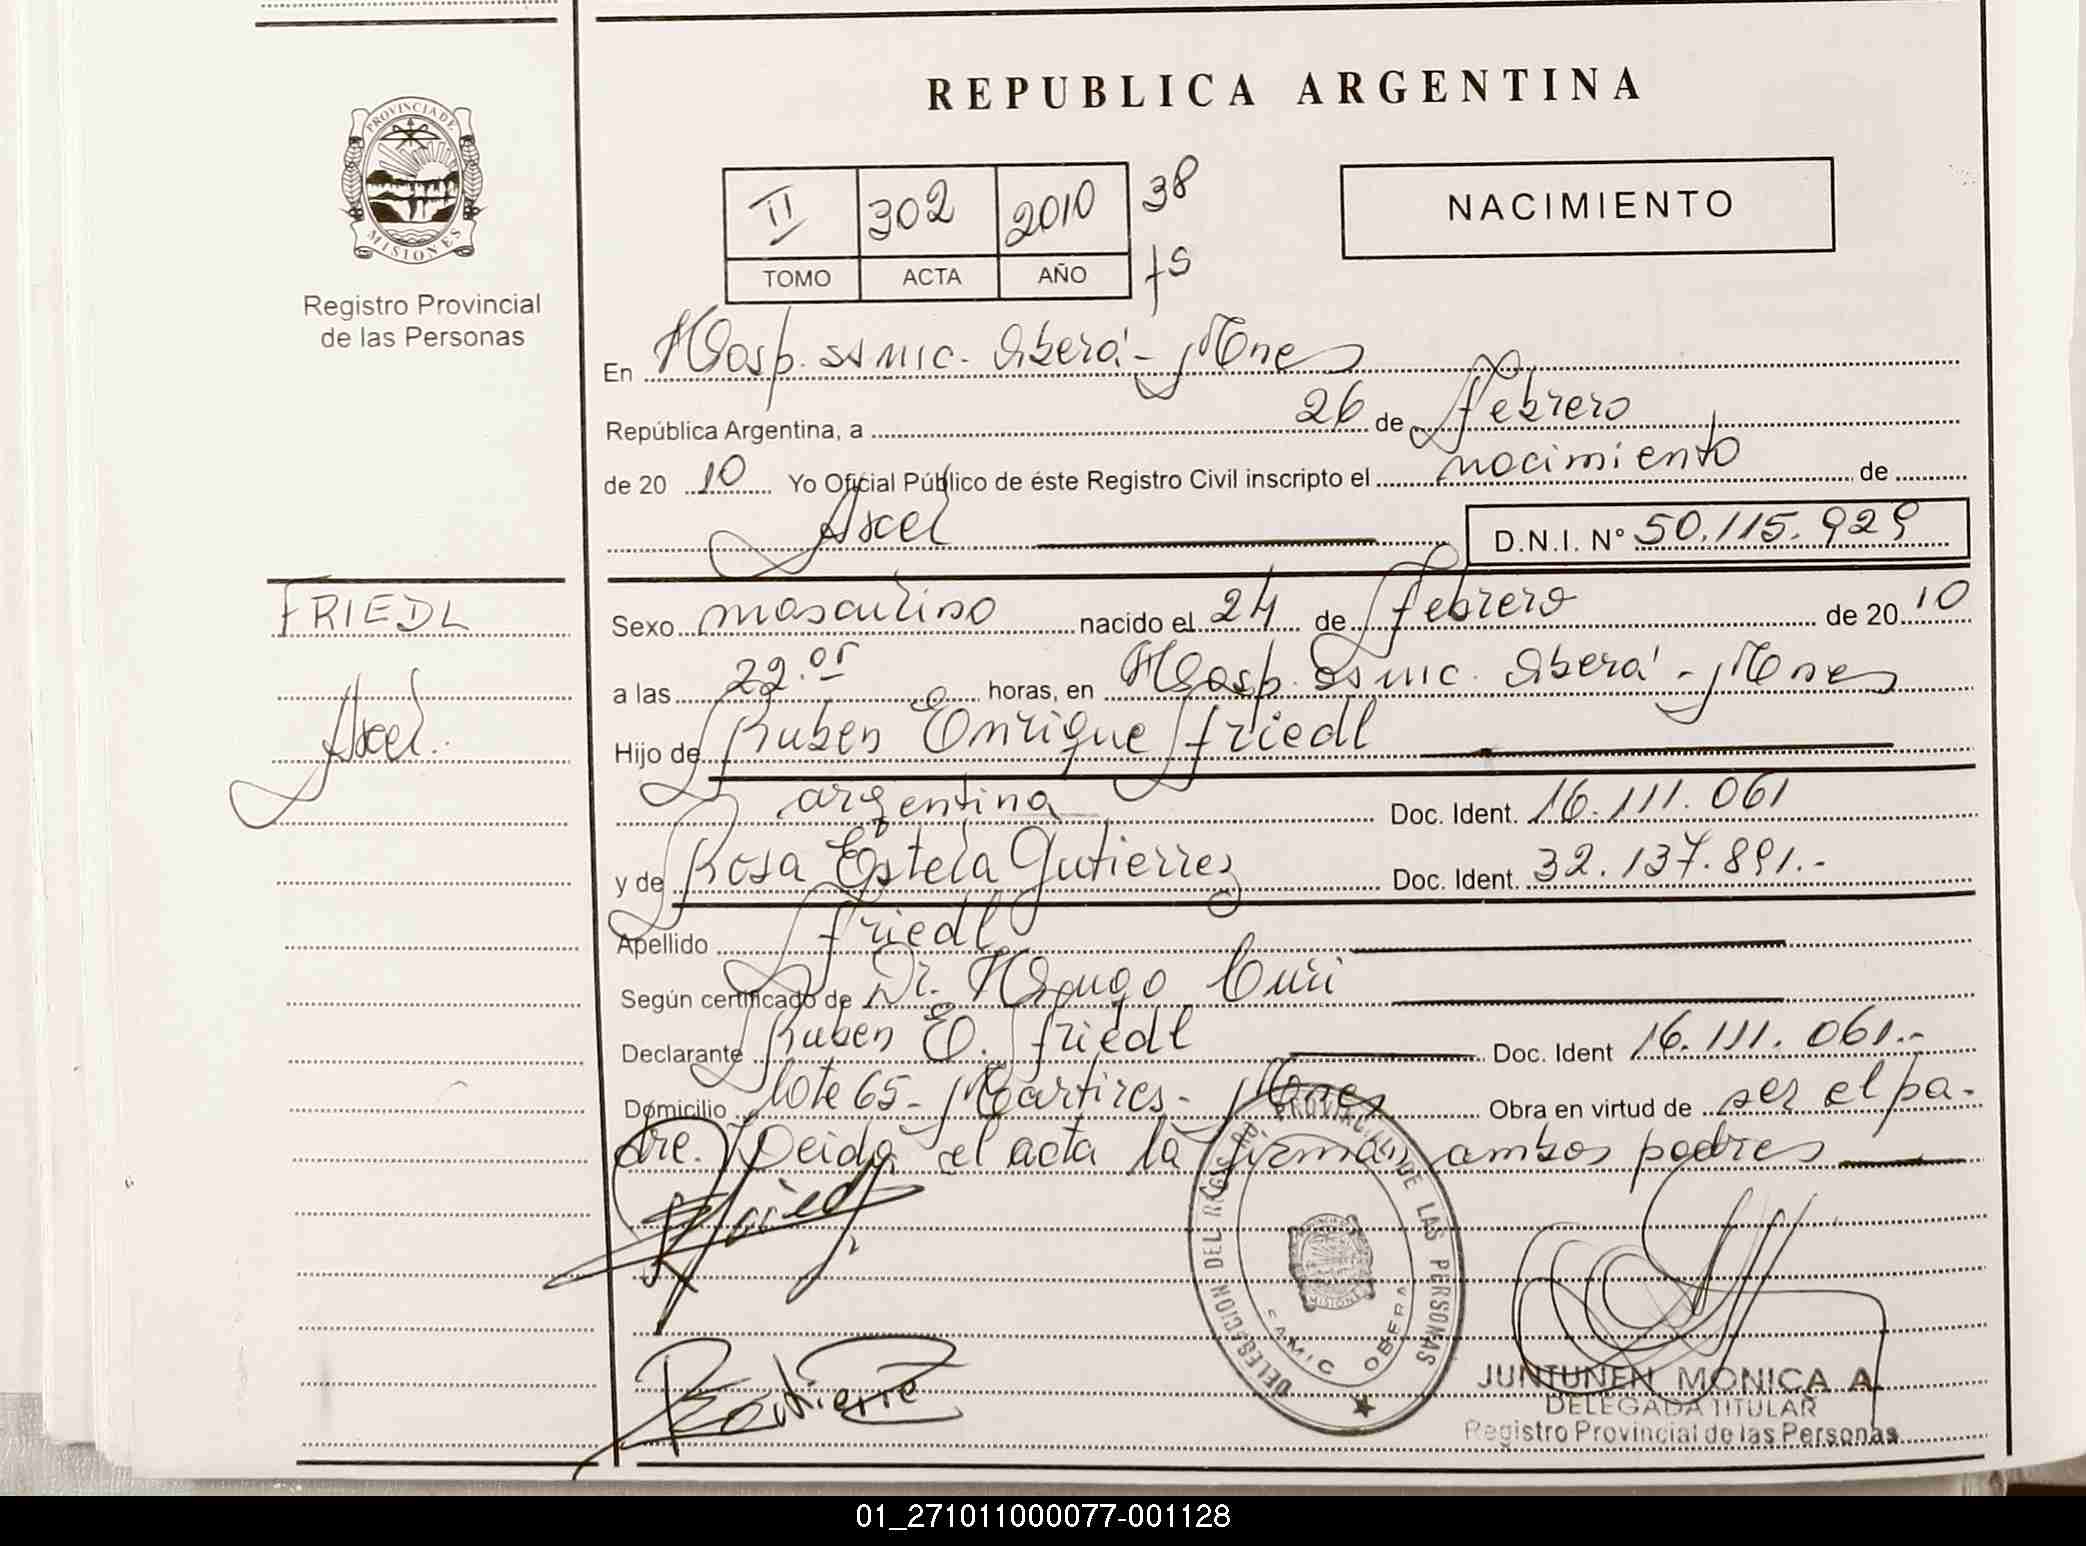 REPUBLICA ARGENTINA
PROVINCIA DE MISIONES
Registro Provincial
de las Personas
II 302 2010 38
TOMO ACTA AÑO fs
NACIMIENTO
En Hosp. SAMIC. Oberá - Mnes
República Argentina, a 26 de febrero
de 2010 Yo Oficial Público de éste Registro Civil inscripto el nacimiento de
Axel D.N.I. Nº 50.115.929
FRIEDL
Axel
Sexo masculino nacido el 24 de febrero de 2010
a las 22.05 horas, en Hosp. SAMIC. Oberá - Mnes
Hijo de Ruben Enrique Friedl
argentina Doc. Ident. 16.111.061
y de Rosa Estela Gutierrez Doc. Ident. 32.137.891.-
Apellido Friedl
Según certificado de Dr. Hugo Curi
Declarante Ruben E. Friedl Doc. Ident 16.111.061.-
Domicilio lote 65 - Martires - Mnes Obra en virtud de ser el pa-
dre. Leida el acta la firman ambos padres
DELEGACION DEL REG. PROVINCIAL DE LAS PERSONAS
SAMIC OBERA
MISIONES
JUNTUNEN MONICA A.
DELEGADA TITULAR
Registro Provincial de las Personas
01_271011000077-001128